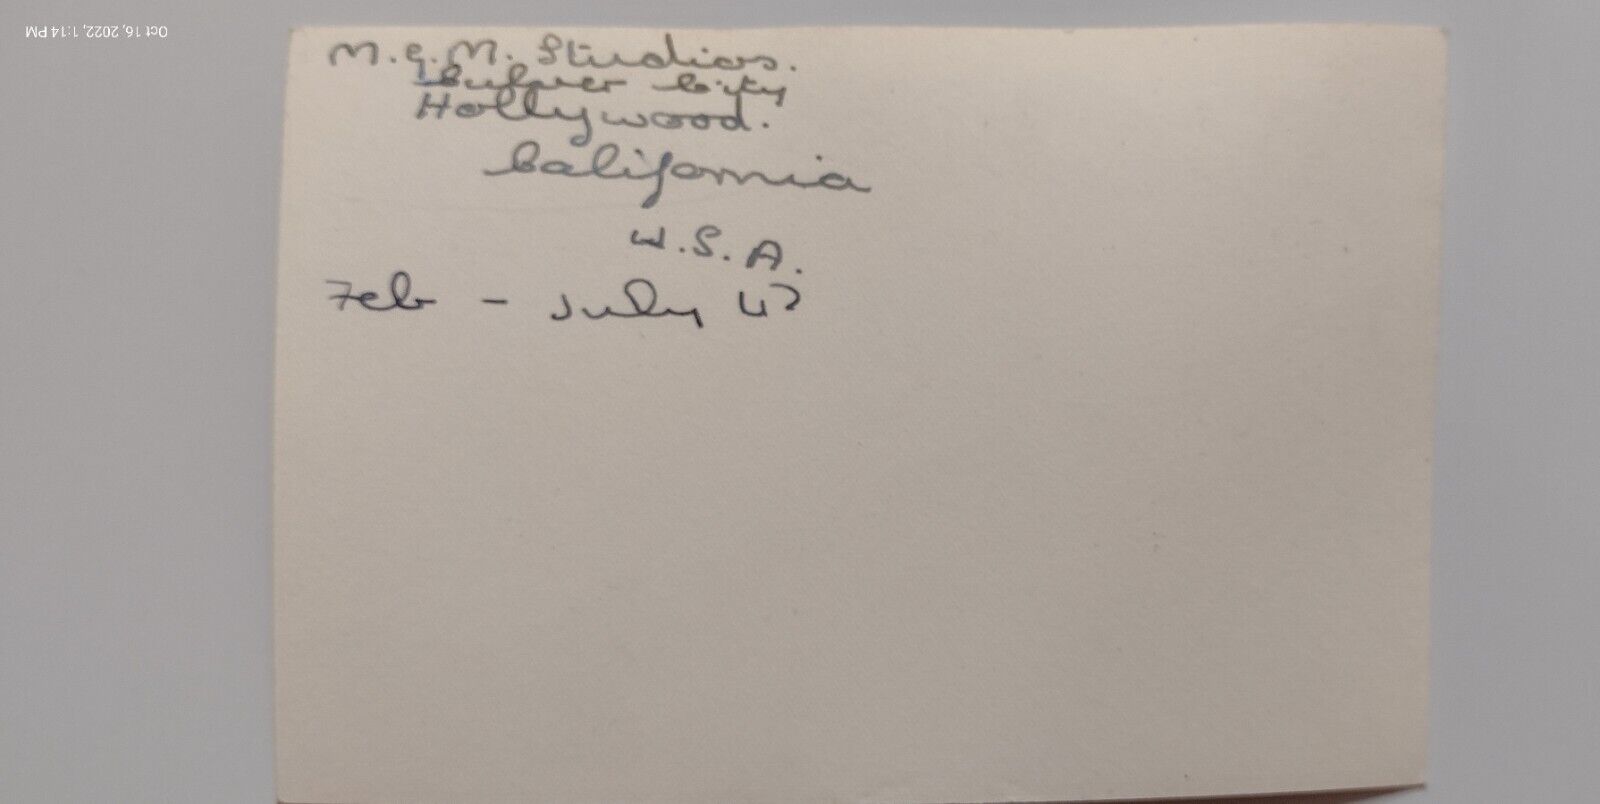 Oct 16, 2022, 1:14 PM
M.G.M. Studios.
Culver City
Hollywood.
California
U.S.A.
Feb - July